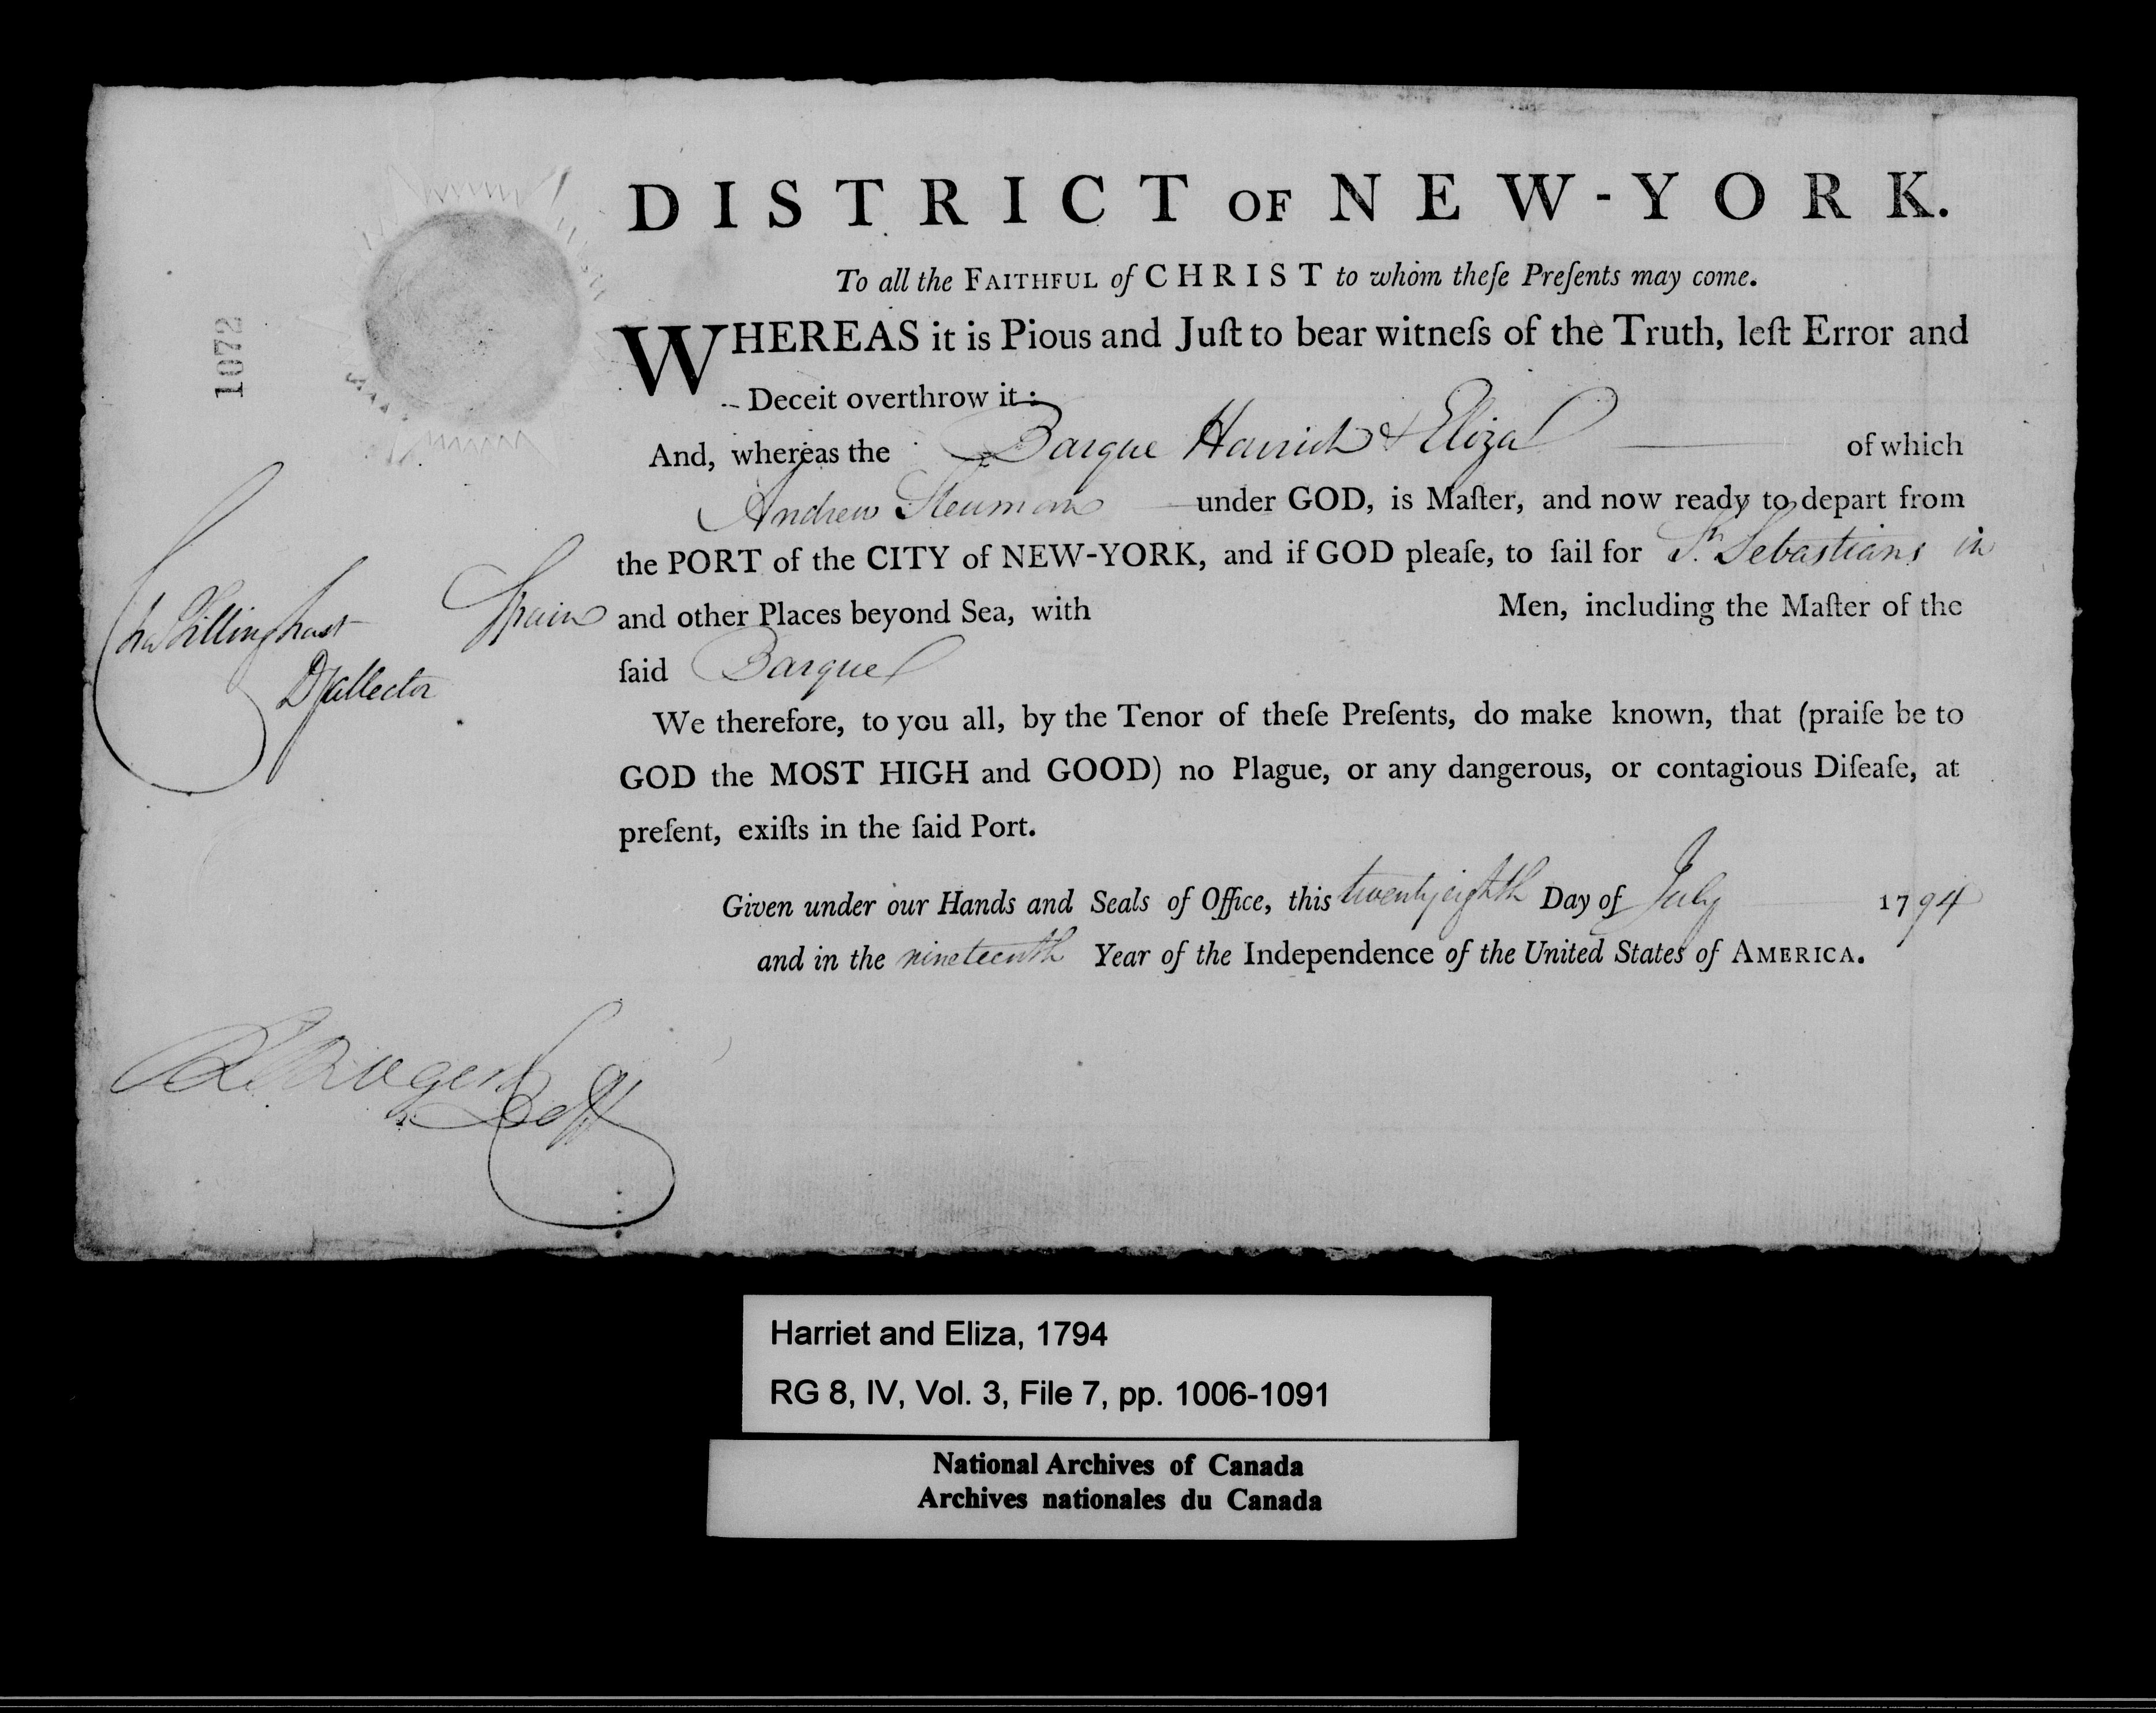 1072
DISTRICT OF NEW-YORK.
To all the FAITHFUL of CHRIST to whom theſe Preſents may come.
WHEREAS it is Pious and Juſt to bear witneſs of the Truth, leſt Error and
Deceit overthrow it:
And, whereas the Barque Harriet & Eliza of which
Andrew under GOD, is Maſter, and now ready to depart from
the PORT of the CITY of NEW-YORK, and if GOD pleaſe, to ſail for St. Sebastians in
Spain and other Places beyond Sea, with Men, including the Maſter of the
ſaid Barque
We therefore, to you all, by the Tenor of theſe Preſents, do make known, that (praiſe be to
GOD the MOST HIGH and GOOD) no Plague, or any dangerous, or contagious Diſeaſe, at
preſent, exiſts in the ſaid Port.
Given under our Hands and Seals of Office, this twenty eighth Day of July 1794
and in the nineteenth Year of the Independence of the United States of AMERICA.
Tillinghast
D Collector
Rogers
Harriet and Eliza, 1794
RG 8, IV, Vol. 3, File 7, pp. 1006-1091
National Archives of Canada
Archives nationales du Canada